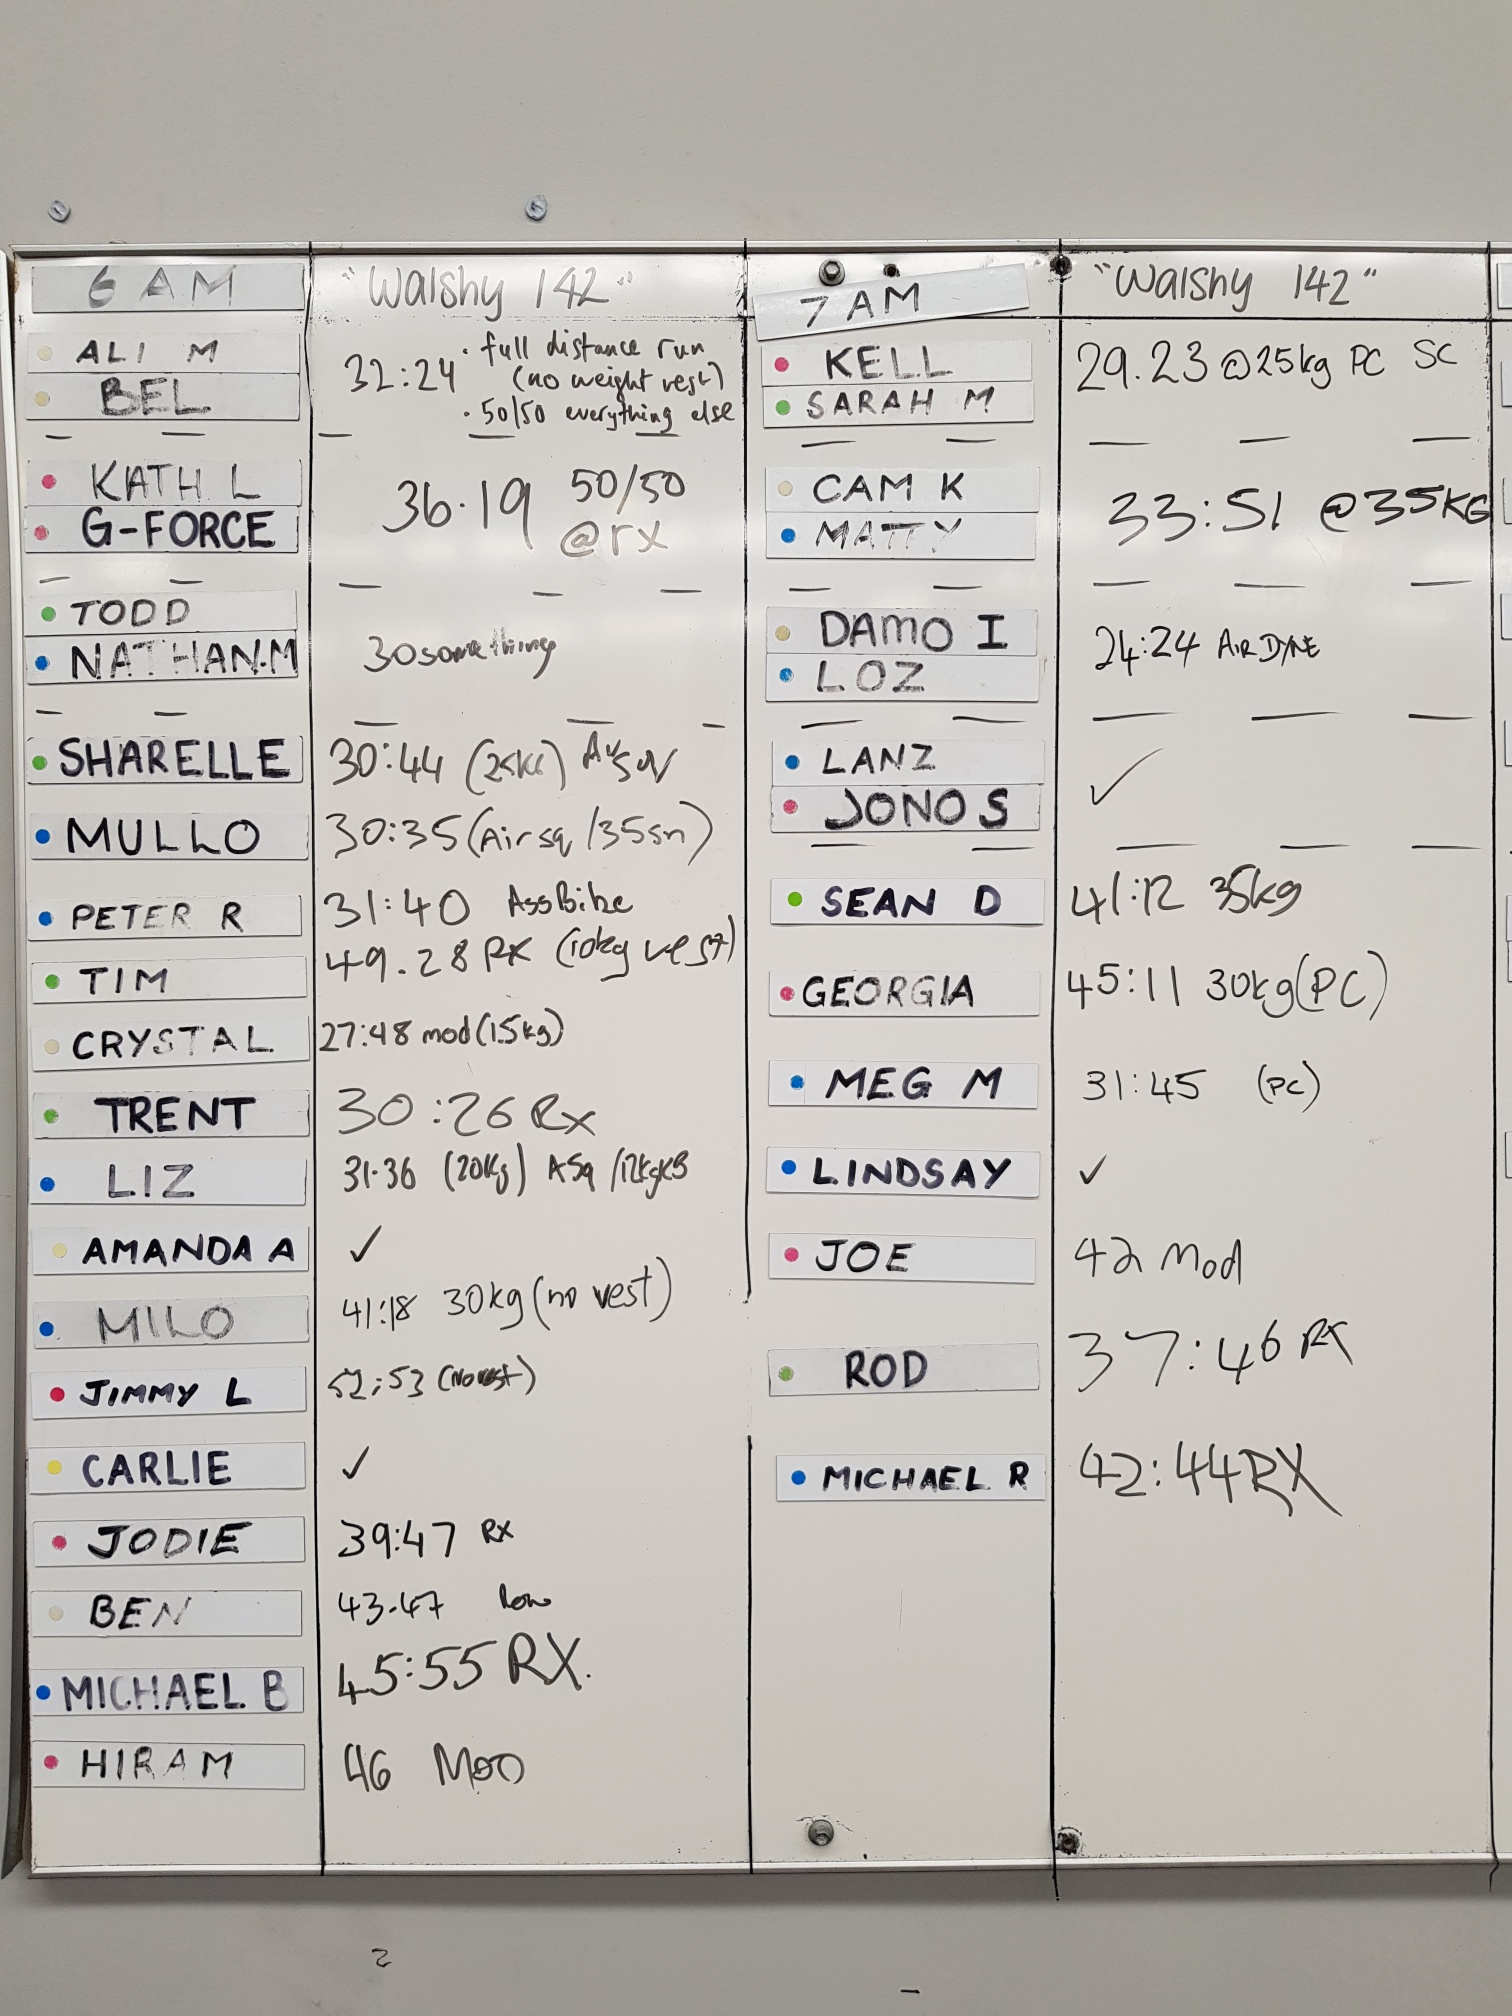 6 AM
"Walshy 142"
ALI M
BEL
32:24 · full distance run
(no weight vest)
· 50/50 everything else
KATH L
G-FORCE
36.19 50/50
@rx
TODD
NATHAN.M
30something
SHARELLE
30:44 (25KG)
MULLO
30:35 (Airsq /35sn)
PETER R
31:40 AssBike
TIM
49.28 RX (10kg vest)
CRYSTAL
27:48 mod (15kg)
TRENT
30:26 Rx
LIZ
31.36 (20Kg) ASq /12kgKB
AMANDA A
✓
MILO
41:18 30kg (no vest)
JIMMY L
52:53 (No vest)
CARLIE
✓
JODIE
39:47 RX
BEN
43.47 Row
MICHAEL B
45:55 RX.
HIRAM
46 MOD
7 AM
"Walshy 142"
KELL
SARAH M
29.23 @25kg PC SC
CAM K
MATTY
33:51 @35KG
DAMO I
LOZ
24:24 AIRDYNE
LANZ
JONO S
✓
SEAN D
41:12 35kg
GEORGIA
45:11 30kg (PC)
MEG M
31:45 (PC)
LINDSAY
✓
JOE
42 Mod
ROD
37:46 RX
MICHAEL R
42:44 RX
2